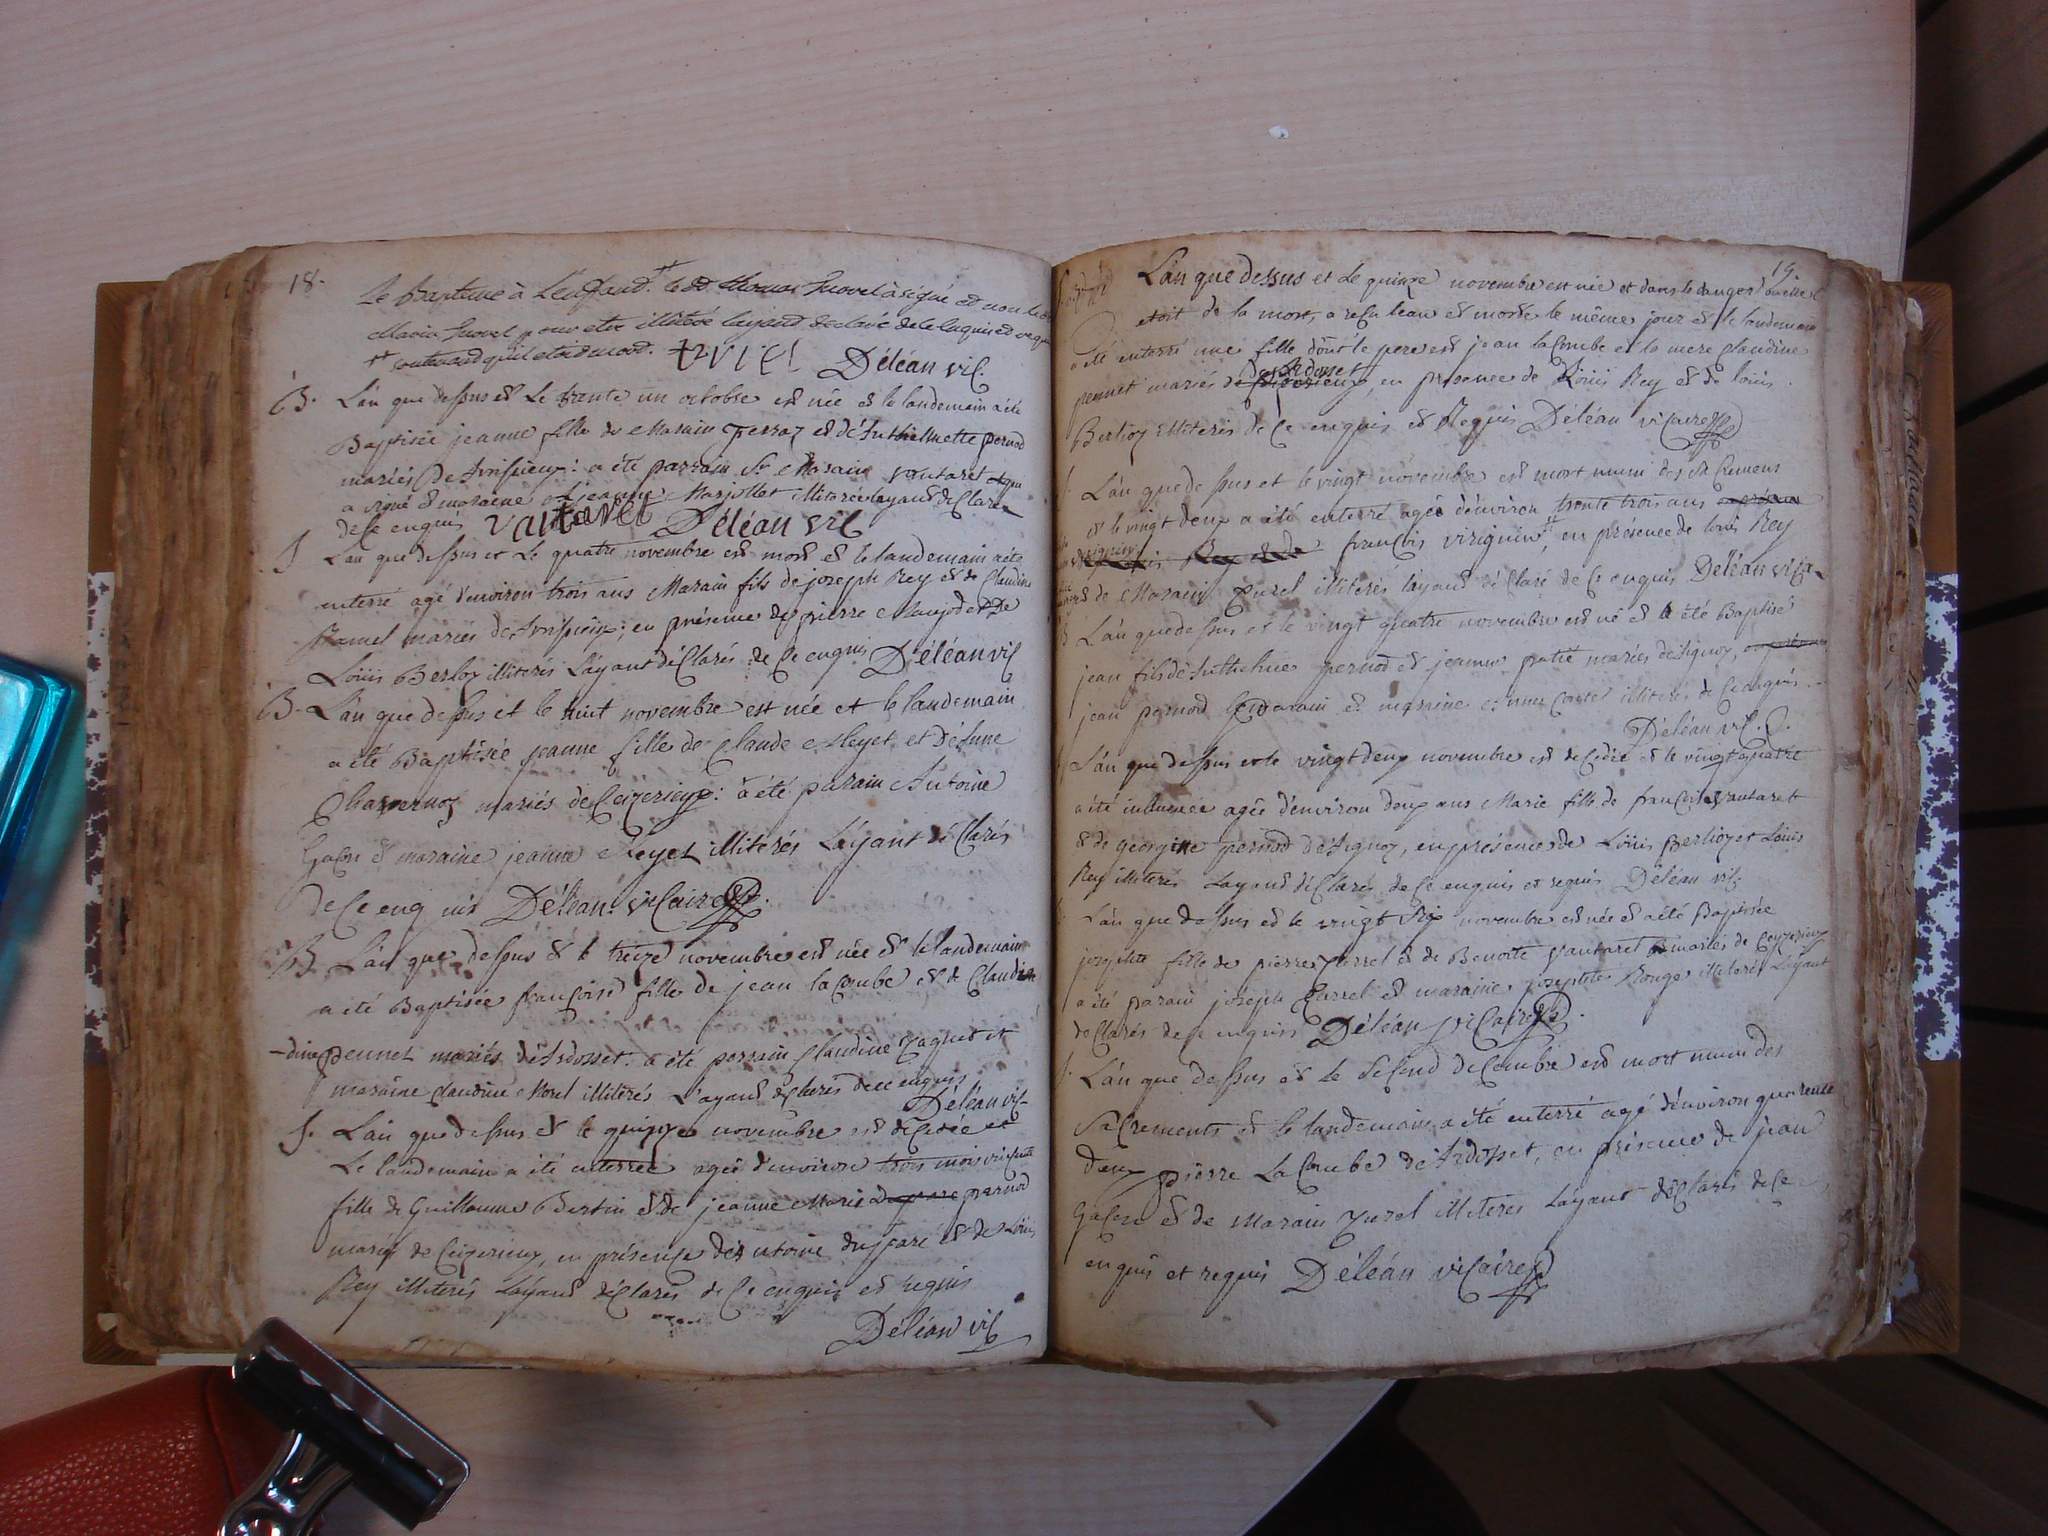 18.
Le Baptême à L'enffand. le thomas Juovel à signé et non
Marin Juovel pour être illitéré layant déclaré de le enquis
contenand quil étoit mort. Déléan vic.
B. L'an que dessus et Le trante un octobre est née et le landemain a été
Baptisée jeanne fille de Marain et d'Anthelmette pernod
mariés de : a été parrain Sr Marain voutaret qui
a signé et maraine jeanne Marjollet illiterée layant declaré
de ce enquis vautaret Déléan vic
S L'an que dessus et Le quatre novembre est mort et le landemain a été
enterré agé d'environ trois ans Marain fils de joseph Rey et de Claudine
mariés de ; en présence de pierre et de
Loüis Berlioz illiterés L'ayant déClarés de Ce enquis Déléan vic
B. L'an que dessus et le huit novembre est née et le landemain
a été Baptisée jeanne fille de Claude Meyet et D'Anne
Charvernoz mariés de Ceizerieux : a été parain Antoine
Gacon et maraine jeanne Meyet illiterés L'ayant déClarés
de Ce enquis Déléan. viCaire
B L'an que dessus et le treize novembre est née et le landemain
a été Baptisée françoise fille de jean laCombe et de Claudine
-dine pennet mariés d'Ardosset. a été parrain Claudine et
maraine Claudine Morel illiterés L'ayant déClarés de ce enquis
Déléan vic
S. L'an que dessus et le quinze novembre est décédée et
Le landemain a été enterrée agée d'environ trois mois
fille de Guillaume Bertin et de jeanne Marie pernod
mariés de Ceizerieux, en présence d'Antoine et de Loüis
Rey illiterés L'ayant déClarés de Ce enquis et requis
Déléan vic
19.
L'an que dessus et Le quinze novembre est née et dans le danger ou elle
etoit de la mort, a reçu leau et morte le même jour et le landemain
a été enterré une fille dont le pere est jean laCombe et la mere Claudine
d'Ardosset
pennet mariés de en présence de Loüis Rey et de loüis
Berlioz illiterés de Ce enquis et Requis Déléan viCaire
L'an que dessus et le vingt novembre est mort muni des SaCremens
et le vingt deux a été enterré agée d'environ trente trois ans
Rey et de françois viriguin, en présence de loüis Rey
et de Marain illiterés l'ayant déClaré de Ce enquis Déléan vica-
B L'an que dessus et le vingt quatre novembre est né et a été Baptisé
jean fils d'Anthelme pernod et jeanne mariés d'Aignoz,
jean pernod parain et maraine illiterés de Ce enquis.
Déléan vic.
L'an que dessus et le vingt deux novembre est deCédée et le vingt quatre
a été inhumée agée d'environ deux ans Marie fille de françois vautaret
et de georgine pernod d'Aignoz, en présence de Loüis Berlioz et Loüis
Rey illiterés Layant déClarés de Ce enquis et requis Déléan vic
L'an que dessus et le vingt Six novembre est née et a été Baptisée
josephte fille de pierre et de Benoite vautaret mariés de Ceyzerieux
a été parain joseph et maraine josephte Rouge illiterés Layant
déClarés de Ce enquis Déléan viCaire
S. L'an que dessus et le SeCond deCembre est mort muni des
SaCrements et le landemain a été enterré agé d'environ quarente
deux pierre LaCombe d'Ardosset, en présence de jean
GaCon et de Marain illiterés Layant déClarés de Ce
enquis et requis Déléan viCaire